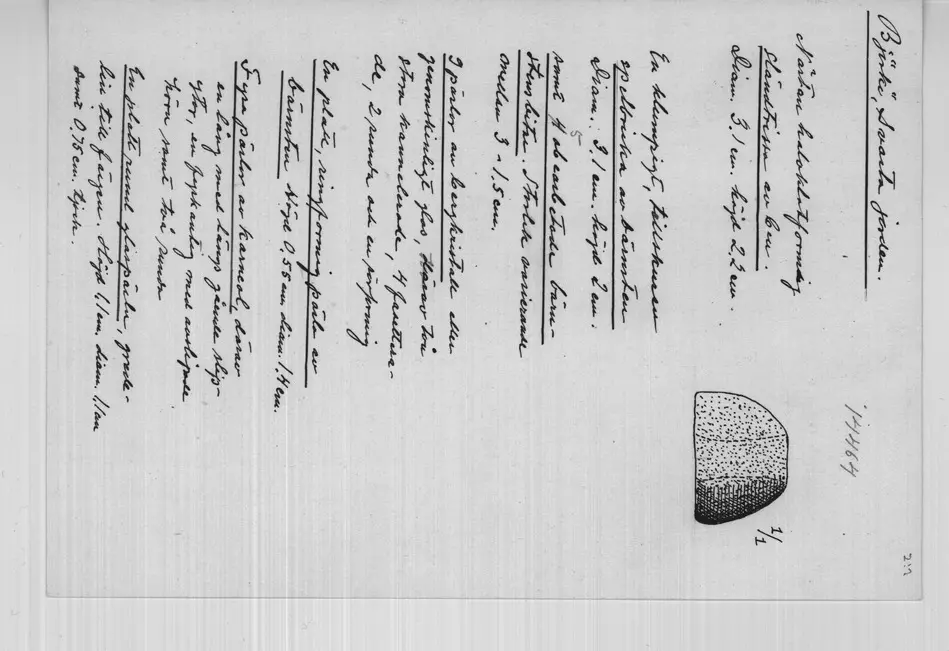 Björkö, Svarta jorden.
14464
Nästan halvklotformig
sländtrissa av ben.
Diam. 3.1 cm. höjd 2.2 cm.
1/1
En klumpigt, tillskuren
spelbricka av bärnsten
Diam.: 3,1 cm. höjd 2 cm.
samt 5 obearbetade bärn-
stensbitar. Storlek varierande
mellan 3 - 1.5 cm.
9 pärlor av bergkristall eller
genomskinligt glas, därav två
stora kannelerade, 4 fasettera-
de, 2 runda och en
En platt, ringformig pärla av
bärnsten Höjd 0,55 cm. diam. 1.4 cm.
Fyra pärlor av karneol, därav
en lång med längs gående slip-
ytor, en fyrkantig med avslipade
hörn samt två runda
En platt rund glaspärla, gröd-
lila till färgen. Höjd 1.1 cm. diam. 1.1 cm
samt 0.75 cm. tjock.